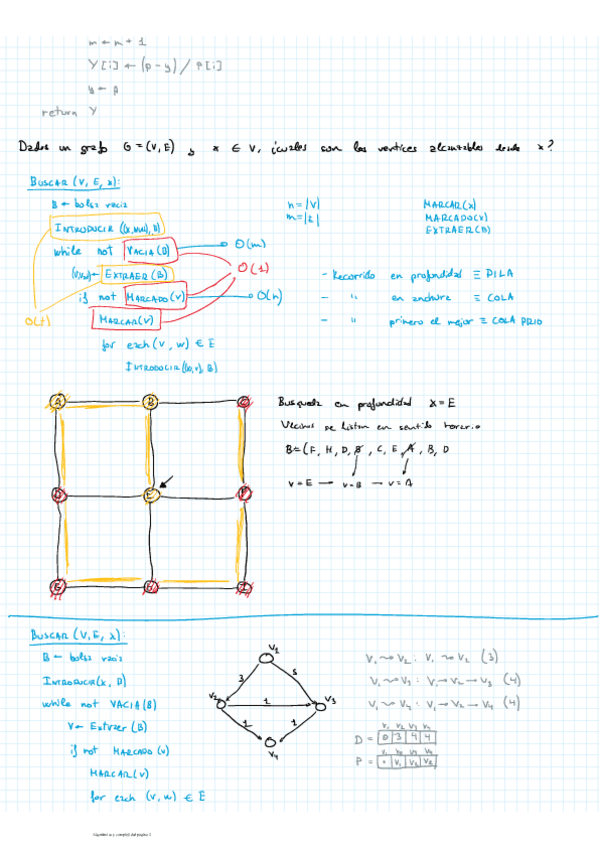 m ← m + 1
Y[i] ← (p - y) / P[i]
y ← p
return Y
Dados un grafo G = (V, E) y x ∈ V, ¿cuales son los vertices alcanzables desde x?
BUSCAR (V, E, x):
B ← bolsa vacia
INTRODUCIR ((x, NULL), B)
while not VACIA(B)
O(m)
EXTRAER (B)
O(1)
if not MARCADO(v)
O(n)
MARCAR(v)
O(t)
for each (v, w) ∈ E
n = |V|
m = |E|
MARCAR(x)
MARCADO(v)
EXTRAER(B)
- Recorrido en profundidad ≡ PILA
- " en anchura ≡ COLA
- " primero el mejor ≡ COLA PRIO
A B C
D E F
G H I
Busqueda en profundidad x = E
Vecinos se listan en sentido horario
B = (F, H, D, B, C, E, A, B, D
v = E → v = B → v = A
BUSCAR (V, E, x):
B ← bolsa vacia
INTRODUCIR(x, B)
while not VACIA(B)
v ← Extraer (B)
if not MARCADO (v)
MARCAR(v)
for each (v, w) ∈ E
V1
3 5
V2 1 V3
1 1
V4
V1 ⇝ V2 : V1 → V2 (3)
V1 ⇝ V3 : V1 → V2 → V3 (4)
V1 ⇝ V4 : V1 → V2 → V4 (4)
V1 V2 V3 V4
D = 0 3 4 4
V1 V2 V3 V4
P = • V1 V2 V2